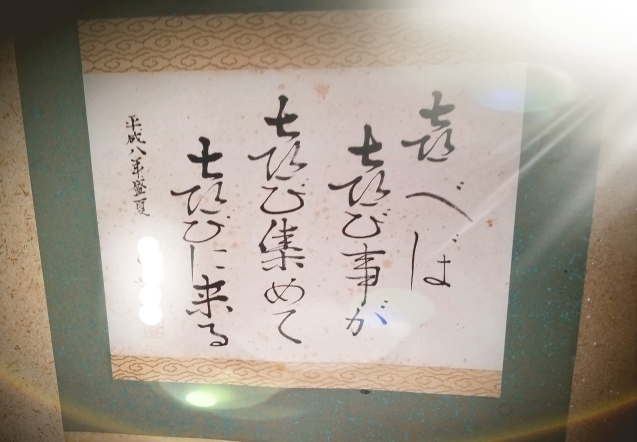 喜べば
喜び事が
喜び集めて
喜びに来る
平成八年盛夏